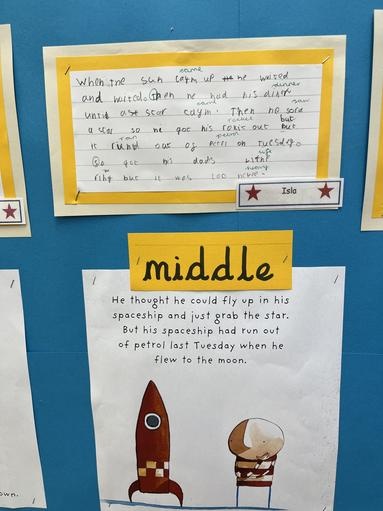 came
When the sun caym up he waited
dinner
and waited. Then he had his diner
came
saw
until a star caym. Then he sora
rocket
but
a star so he got his rokit out but
ran
petrol
it rund out of petrl on Tuesday.
life
So got his dads
heavy
ring but it was too
Isla
middle
He thought he could fly up in his
spaceship and just grab the star.
But his spaceship had run out
of petrol last Tuesday when he
flew to the moon.
own.